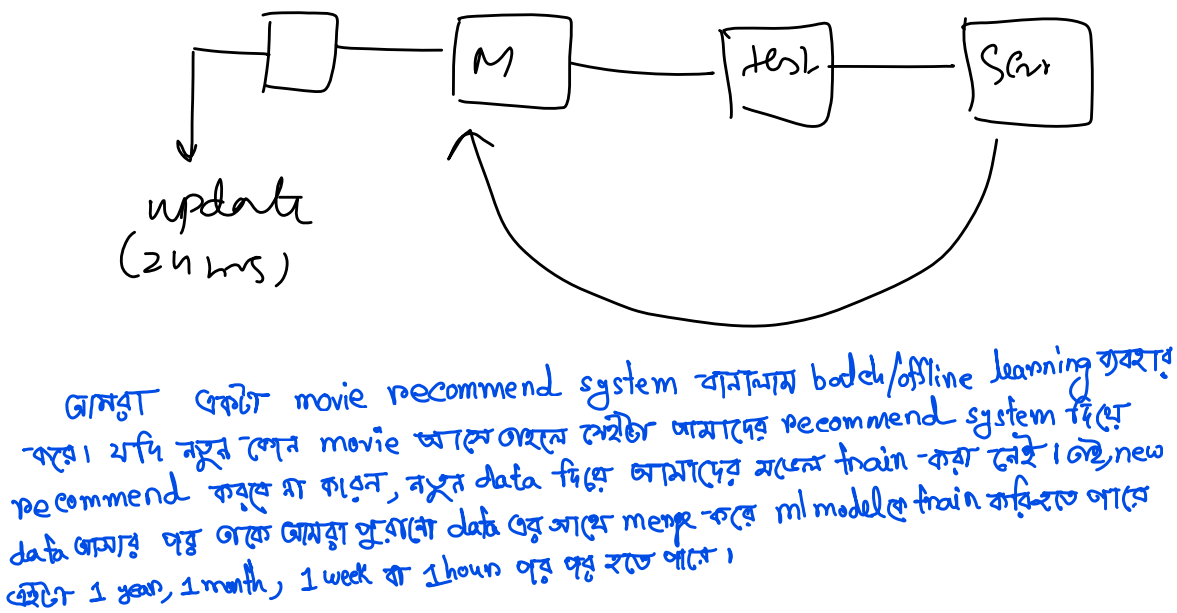 M
test
Serv
update
(24 hrs)
আমরা একটা movie recommend system বানালাম batch/offline learning ব্যবহার
করে। যদি নতুন কোন movie আসে তাহলে সেইটা আমাদের recommend system দিয়ে
recommend করবে না কারন, নতুন data দিয়ে আমাদের মডেল train করা নেই। তাই, new
data আসার পর তাকে আমরা পুরানো data এর সাথে merge করে ml model কে train করি হতে পারে
এইটা 1 year, 1 month, 1 week বা 1 hour পর পর হতে পারে।